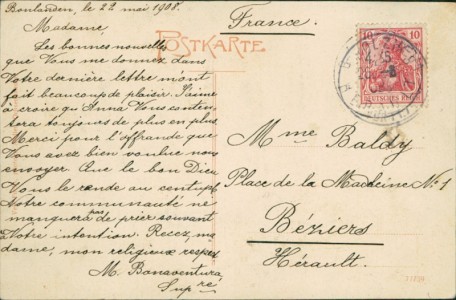 Bonlanden, le 22 mai 1908.
Madame,
Les bonnes nouvelles
que Vous me donnez dans
Votre dernière lettre m'ont
fait beaucoup de plaisir. J'aime
à croire qu'Anna Vous conten-
tera toujours de plus en plus.
Merci pour l'offrande que
Vous avez bien voulu nous
envoyer. Que le bon Dieu
Vous le rende au centuple
Notre communauté ne
manquera pas de prier souvent
à Votre intention. Recez, ma-
dame, mon religieux respect
M. Bonaventura
Sup.re
POSTKARTE
France.
10 10
DEUTSCHES REICH
Mme Baldy
Place de la Madeleine No 1
Béziers
Hérault.